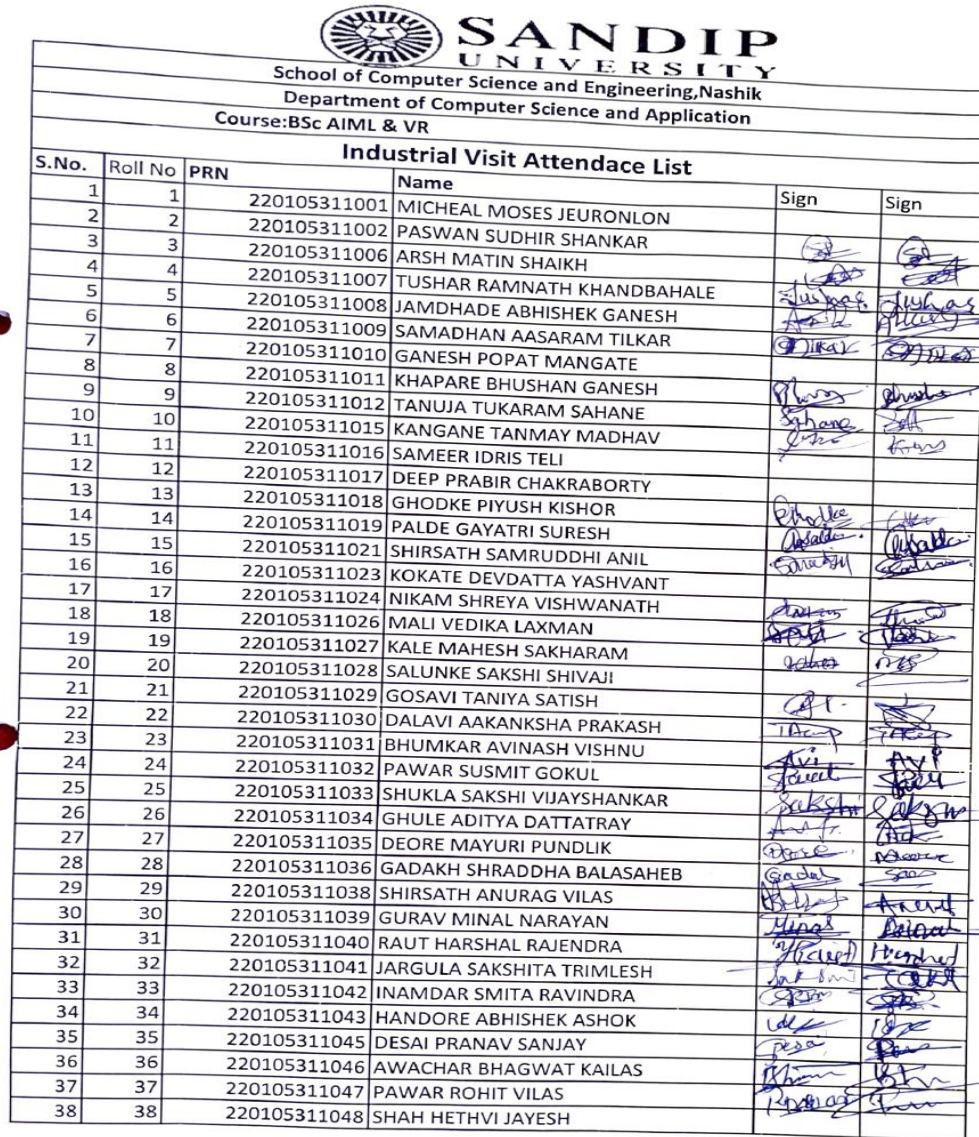 SANDIP
UNIVERSITY
School of Computer Science and Engineering,Nashik
Department of Computer Science and Application
Course:BSc AIML & VR
Industrial Visit Attendace List
S.No. Roll No PRN Name Sign Sign
1 1 220105311001 MICHEAL MOSES JEURONLON
2 2 220105311002 PASWAN SUDHIR SHANKAR
3 3 220105311006 ARSH MATIN SHAIKH
4 4 220105311007 TUSHAR RAMNATH KHANDBAHALE Tushar Tushar
5 5 220105311008 JAMDHADE ABHISHEK GANESH
6 6 220105311009 SAMADHAN AASARAM TILKAR
7 7 220105311010 GANESH POPAT MANGATE
8 8 220105311011 KHAPARE BHUSHAN GANESH
9 9 220105311012 TANUJA TUKARAM SAHANE Sahane
10 10 220105311015 KANGANE TANMAY MADHAV
11 11 220105311016 SAMEER IDRIS TELI
12 12 220105311017 DEEP PRABIR CHAKRABORTY
13 13 220105311018 GHODKE PIYUSH KISHOR Ghodke
14 14 220105311019 PALDE GAYATRI SURESH
15 15 220105311021 SHIRSATH SAMRUDDHI ANIL
16 16 220105311023 KOKATE DEVDATTA YASHVANT
17 17 220105311024 NIKAM SHREYA VISHWANATH
18 18 220105311026 MALI VEDIKA LAXMAN
19 19 220105311027 KALE MAHESH SAKHARAM
20 20 220105311028 SALUNKE SAKSHI SHIVAJI
21 21 220105311029 GOSAVI TANIYA SATISH
22 22 220105311030 DALAVI AAKANKSHA PRAKASH
23 23 220105311031 BHUMKAR AVINASH VISHNU Avi Avi
24 24 220105311032 PAWAR SUSMIT GOKUL
25 25 220105311033 SHUKLA SAKSHI VIJAYSHANKAR Sakshi Sakshi
26 26 220105311034 GHULE ADITYA DATTATRAY
27 27 220105311035 DEORE MAYURI PUNDLIK
28 28 220105311036 GADAKH SHRADDHA BALASAHEB
29 29 220105311038 SHIRSATH ANURAG VILAS
30 30 220105311039 GURAV MINAL NARAYAN
31 31 220105311040 RAUT HARSHAL RAJENDRA
32 32 220105311041 JARGULA SAKSHITA TRIMLESH
33 33 220105311042 INAMDAR SMITA RAVINDRA
34 34 220105311043 HANDORE ABHISHEK ASHOK
35 35 220105311045 DESAI PRANAV SANJAY
36 36 220105311046 AWACHAR BHAGWAT KAILAS
37 37 220105311047 PAWAR ROHIT VILAS
38 38 220105311048 SHAH HETHVI JAYESH